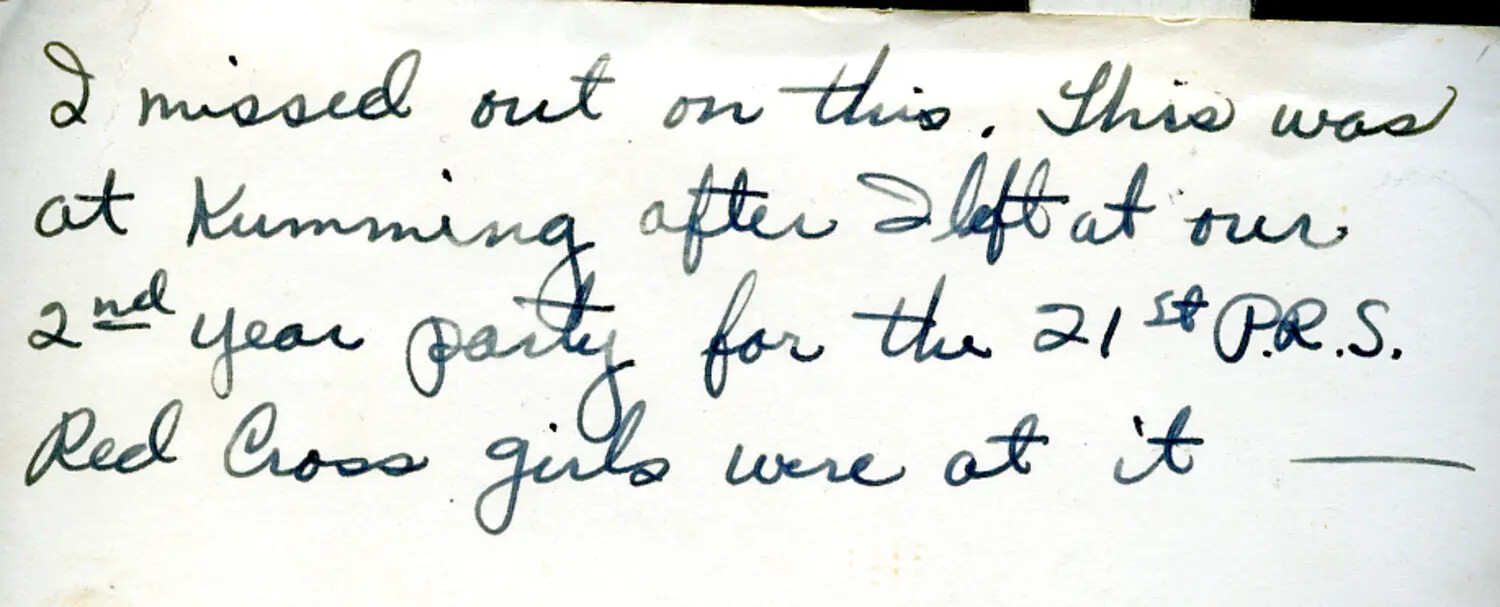 I missed out on this. This was
at Kumming after I left at our
2nd year party for the 21st P.R.S.
Red Cross girls were at it —